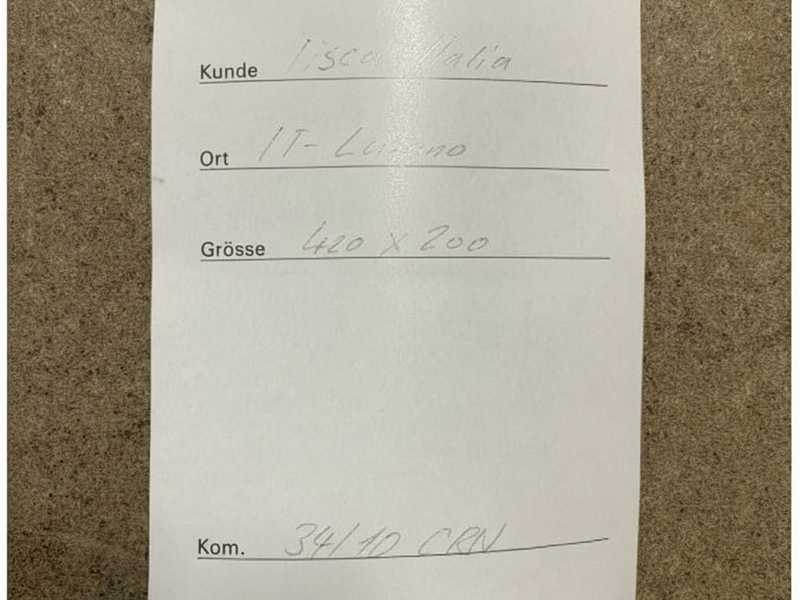 Kunde Tisca Italia
Ort IT-
Grösse 420 x 200
Kom. 34/10 CRN